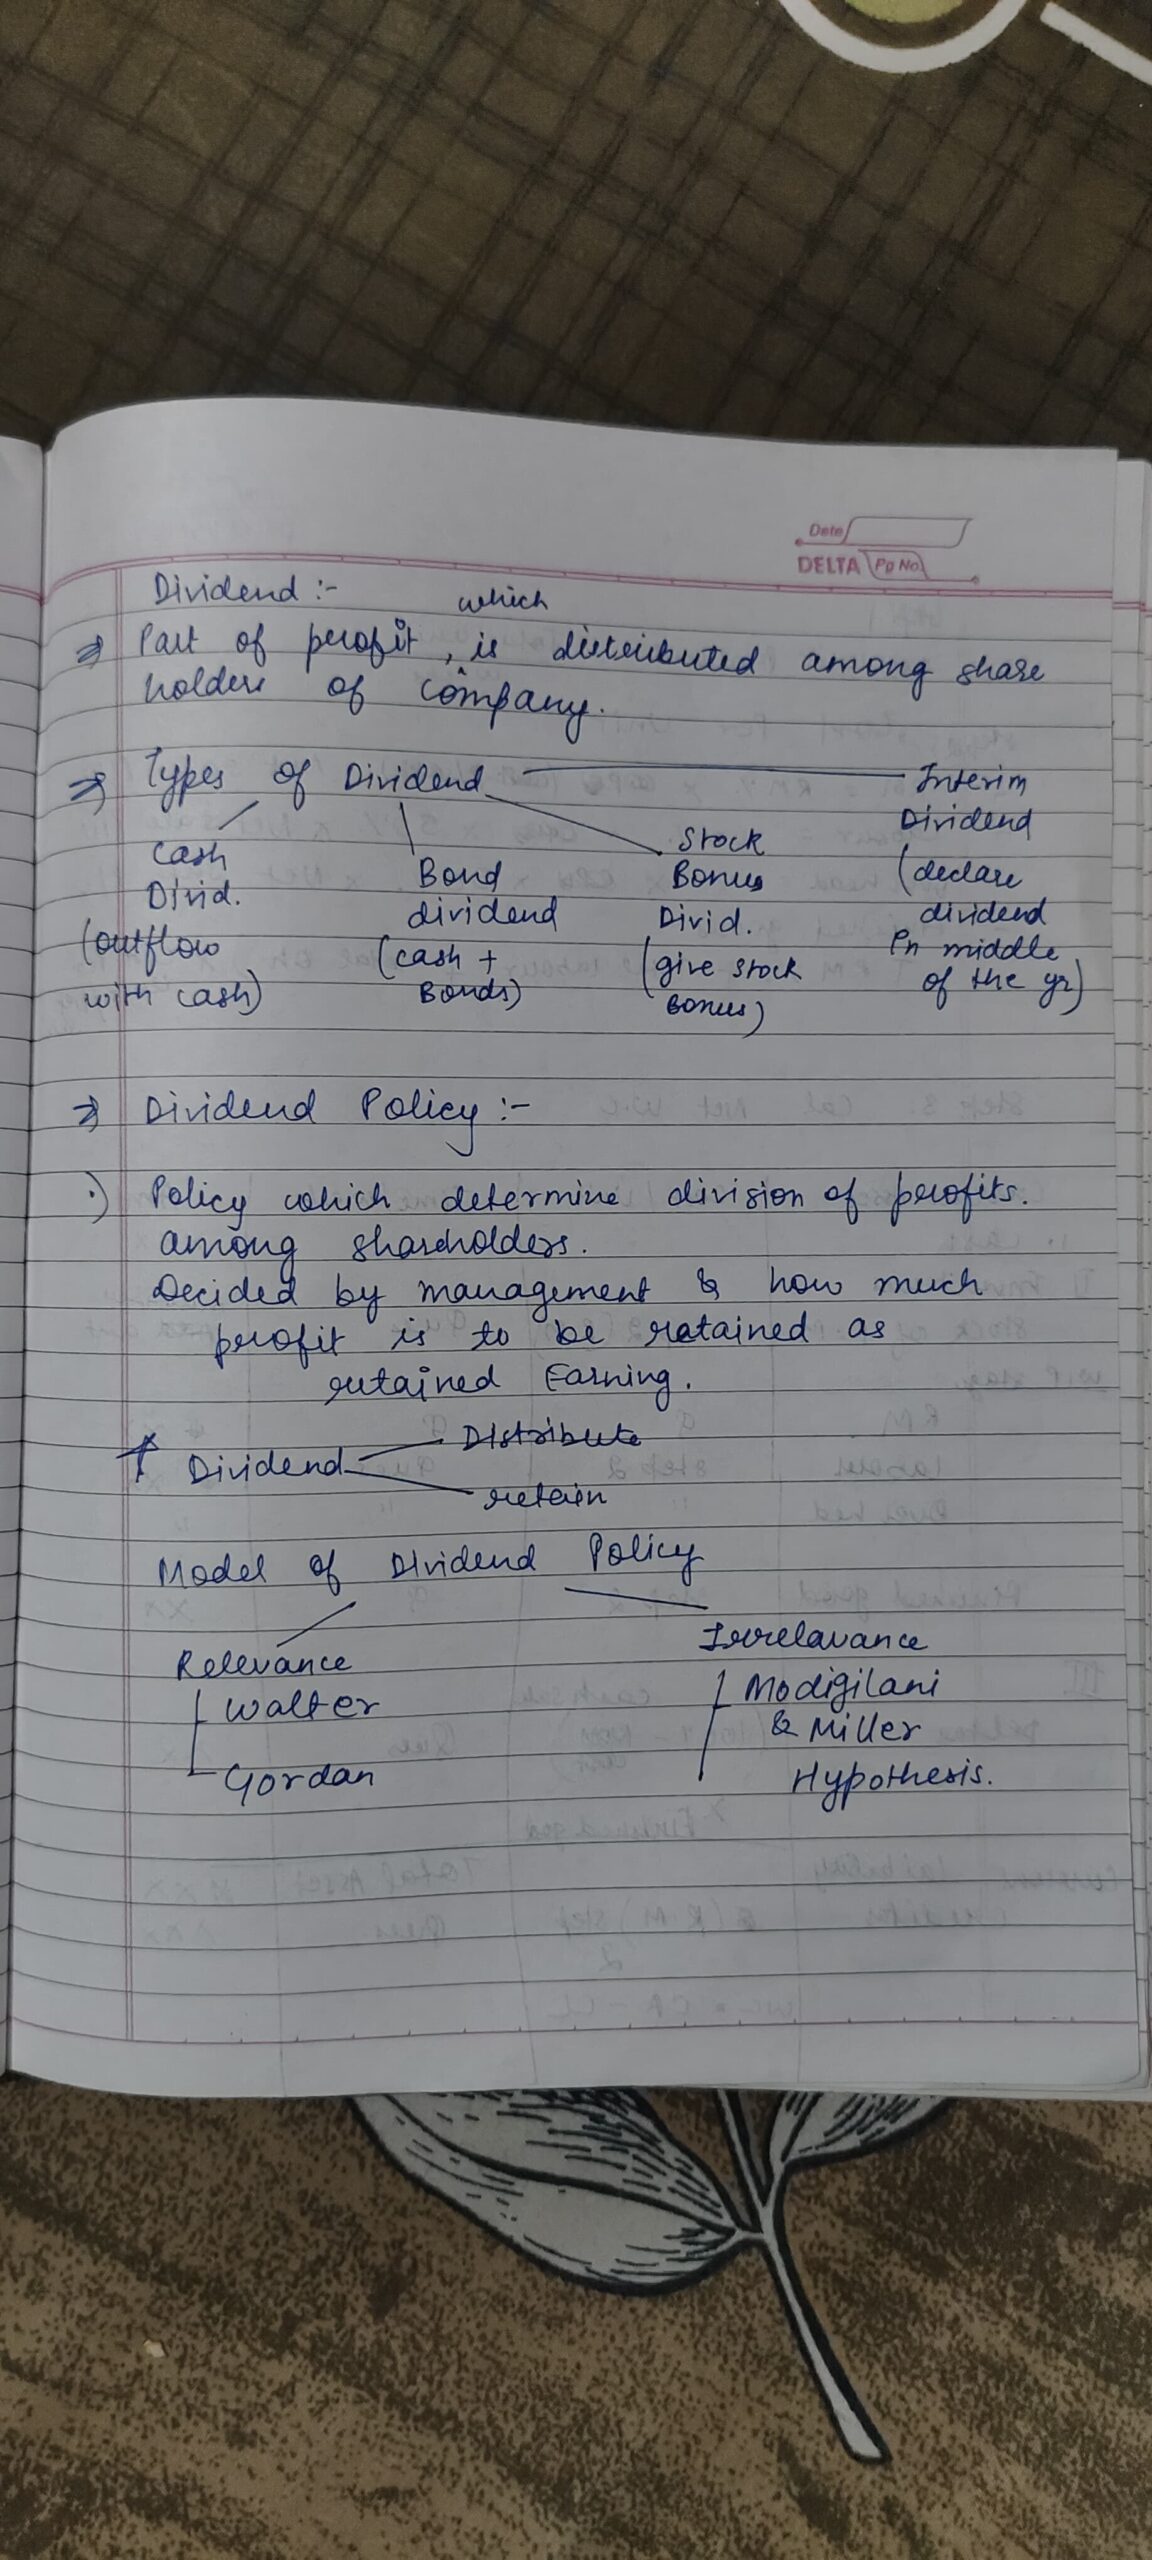 Date
DELTA Pg No.
Dividend :-
which
⇒ Part of profit, is distributed among share
holders of company.
⇒ Types of Dividend
Interim
Dividend
(declare
dividend
In middle
of the yr)
Cash
Divid.
(outflow
with cash)
Bond
dividend
(cash +
Bonds)
Stock
Bonus
Divid.
(give stock
Bonus)
⇒ Dividend Policy :-
.) Policy which determine division of profits.
among shareholders.
Decided by management & how much
profit is to be retained as
retained Earning.
Dividend
Distribute
retain
Model of Dividend Policy
Relevance
Walter
Gordan
Irrelavance
Modigilani
& Miller
Hypothesis.